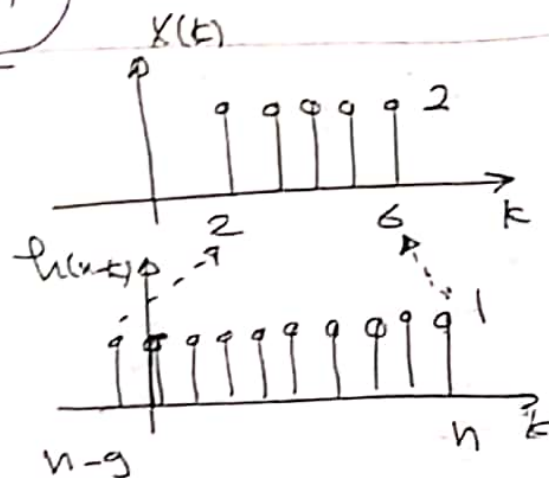 x(k)
2
2 6 k
h(n-k)
1
n-9 n k